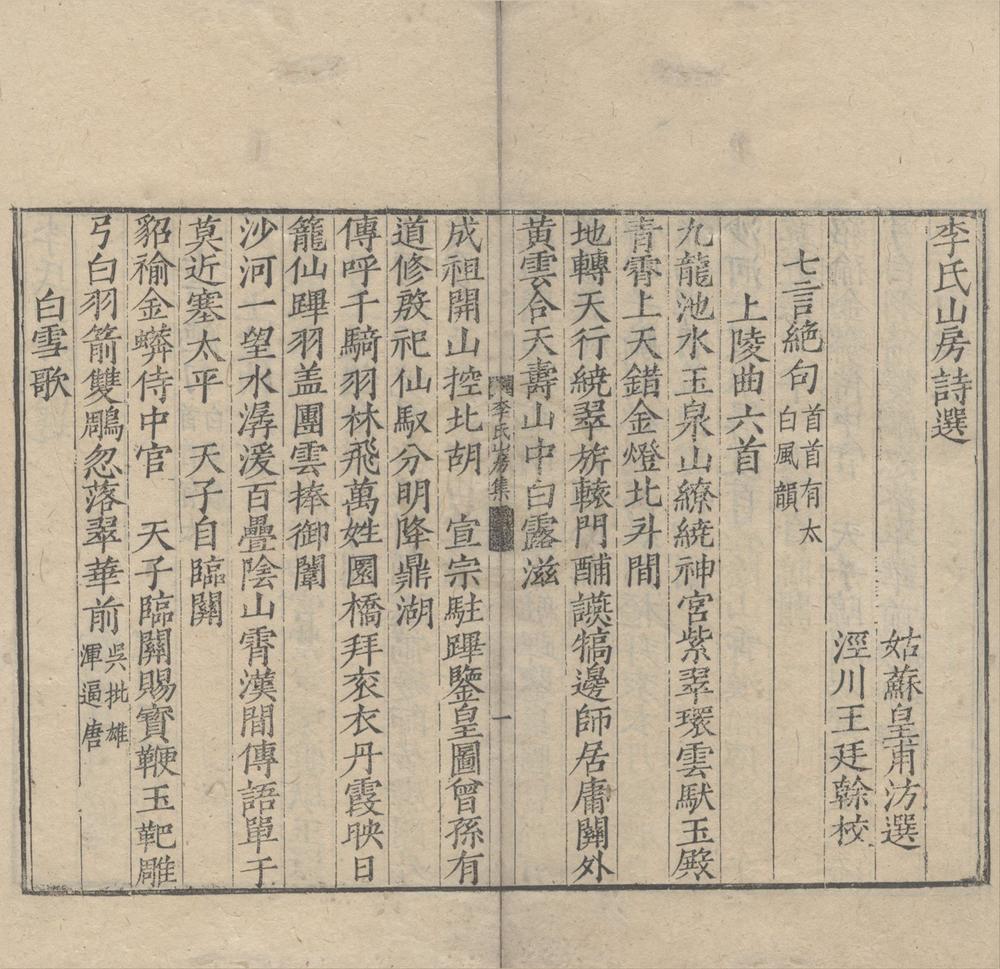 李氏山房詩選
姑蘇皇甫汸選
涇川王廷榦校
七言絶句首首有太
白風韻
上陵曲六首
九龍池水玉泉山繚繞神宮紫翠環雲馱玉殿
青霄上天錯金燈北斗間
地轉天行繞翠旂轅門酺讌犒邊師居庸關外
黃雲合天壽山中白露滋
李氏山房集
一
成祖開山控北胡　宣宗駐蹕鑒皇圖曾孫有
道修殷祀仙馭分明降鼎湖
傳呼千騎羽林飛萬姓園橋拜衮衣丹霞映日
籠仙蹕羽盖團雲捧御闈
沙河一望水潺湲百疊陰山霄漢間傳語單于
莫近塞太平　天子自臨關
貂褕金蟒侍中官　天子臨關賜寳鞭玉靶雕
弓白羽箭雙鵰忽落翠華前吳批雄
渾逼唐
白雪歌